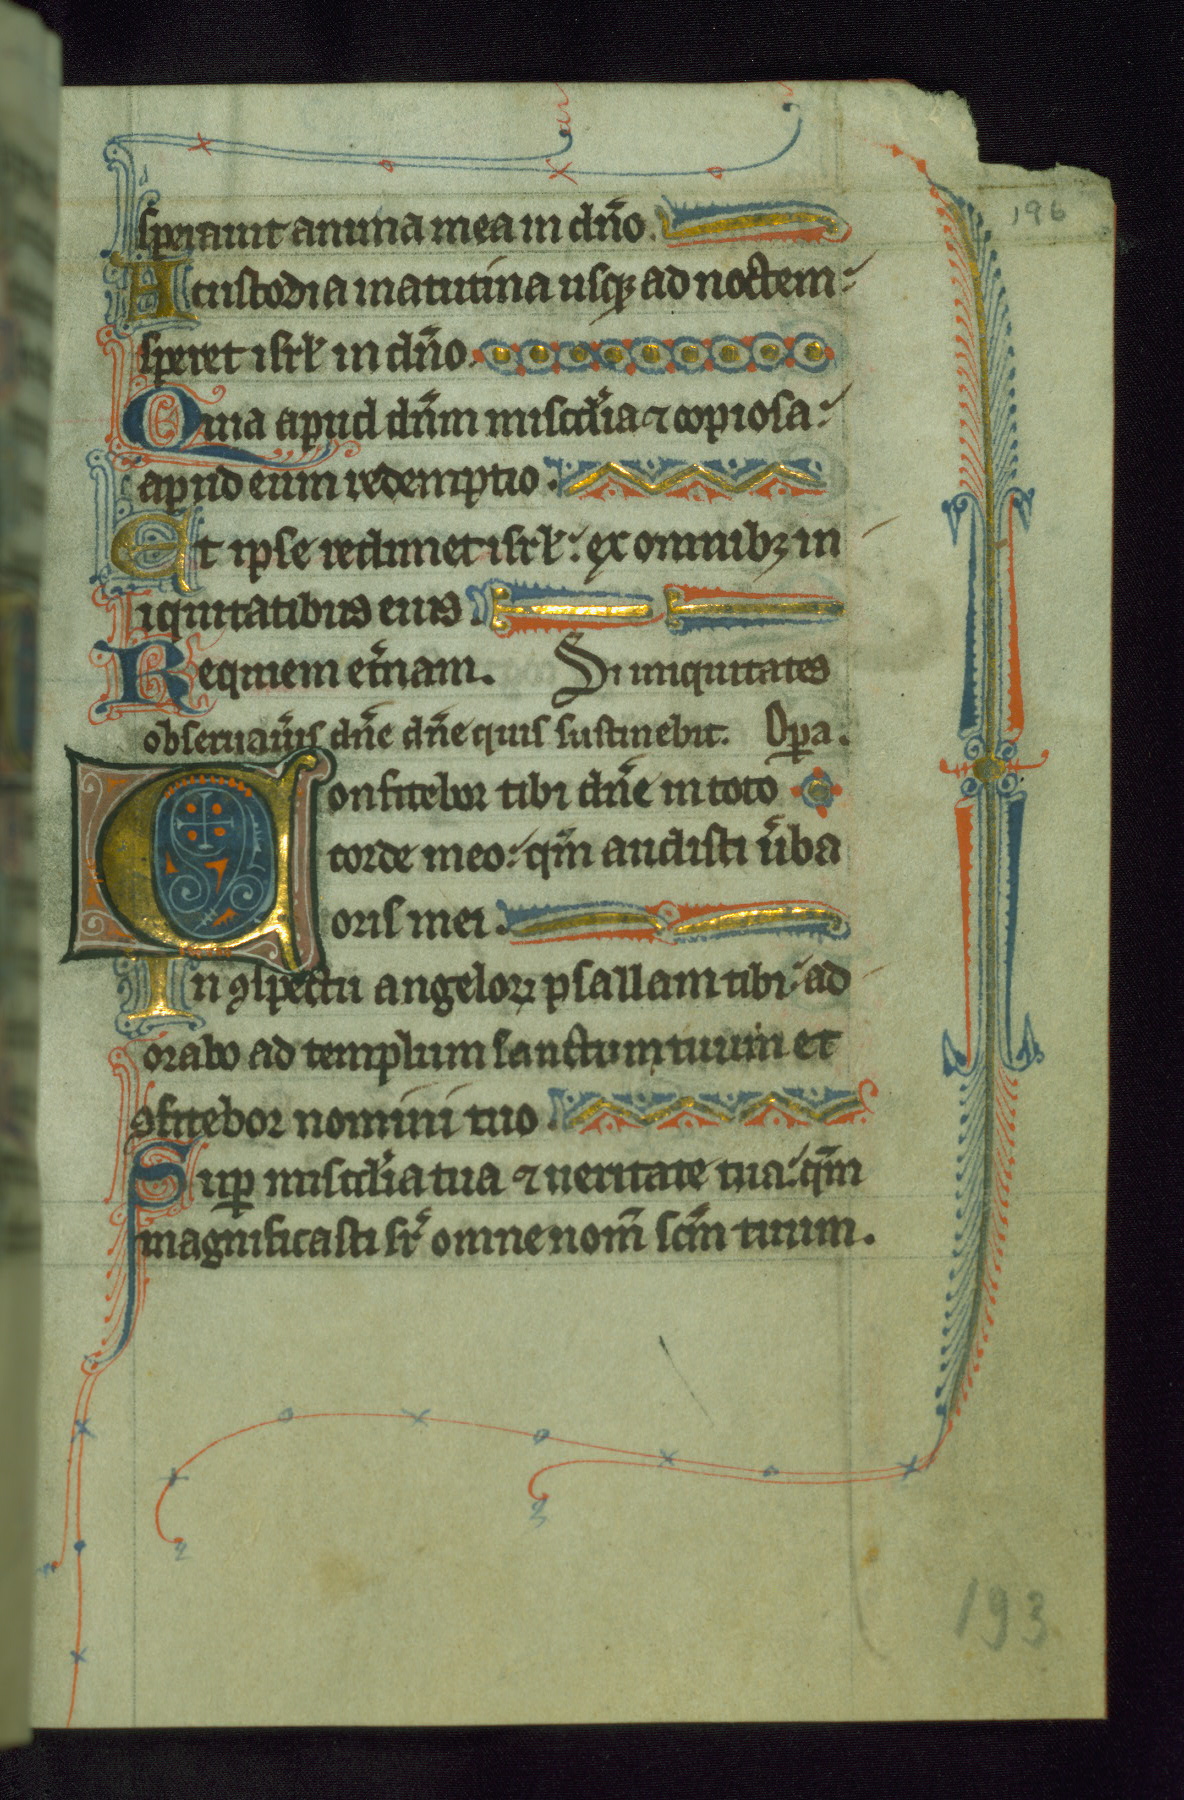 196
sperauit anima mea in dn̄o.
A custodia matutina usqꝫ ad noctem
speret isrl̄ in dn̄o.
Quia apud dn̄m misc̄dia ⁊ copiosa
apud eum redemptio.
Et ipse redimet isrl̄: ex omnibꝫ in
iquitatibus eius.
Requiem et̄nam. Si iniquitates
obseruaūis dn̄e dn̄e quis sustinebit. Opꝑa.
Confitebor tibi dn̄e in toto
corde meo: qm̄ audisti ūba
oris mei.
In ꝯspectu angeloꝝ psallam tibi: ad
orabo ad templum sanctum tuum et
ꝯfitebor nomini tuo.
Suꝑ misc̄dia tua ⁊ ueritate tua: qm̄
magnificasti sr̄ omne nom̄ sc̄m tuum.
193